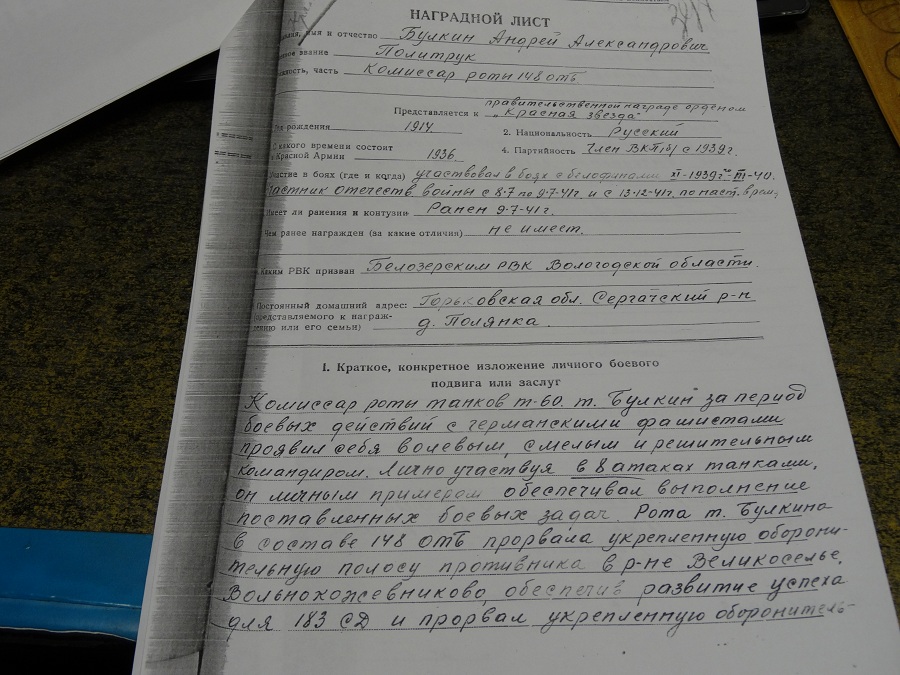 НАГРАДНОЙ ЛИСТ
имя и отчество Булкин Андрей Александрович
звание Политрук
часть Комиссар роты 148 отб
правительственной награде орденом
Представляется к „Красная звезда"
рождения 1914 2. Национальность Русский
какого времени состоит
Красной Армии 1936 4. Партийность Член ВКП/б/ с 1939г.
в боях (где и когда) участвовал в боях с белофинами XI-1939г. III-40.
отечеств войны с 8.7 по 9-7-41г. и с 13-12-41г. по наст. врем.
Имеет ли ранения и контузии Ранен 9-7-41г.
Чем ранее награжден (за какие отличия) не имеет.
Каким РВК призван Белозерским РВК Вологодской области.
Постоянный домашний адрес: Горьковская обл. Сергачский р-н
представляемого к награж-
дению или его семьи) д. Полянка.
I. Краткое, конкретное изложение личного боевого
подвига или заслуг
Комиссар роты танков т-60. т. Булкин за период
боевых действий с германскими фашистами
проявил себя волевым, смелым и решительным
командиром. Лично участвуя в 8 атаках танками,
он личным примером обеспечивал выполнение
поставленных боевых задач. Рота т. Булкина
в составе 148 ОТБ прорвала укрепленную оборони-
тельную полосу противника в р-не Великоселье,
Вольнокожевниково, обеспечив развитие успеха
для 183 СД и прорвал укрепленную оборонитель-